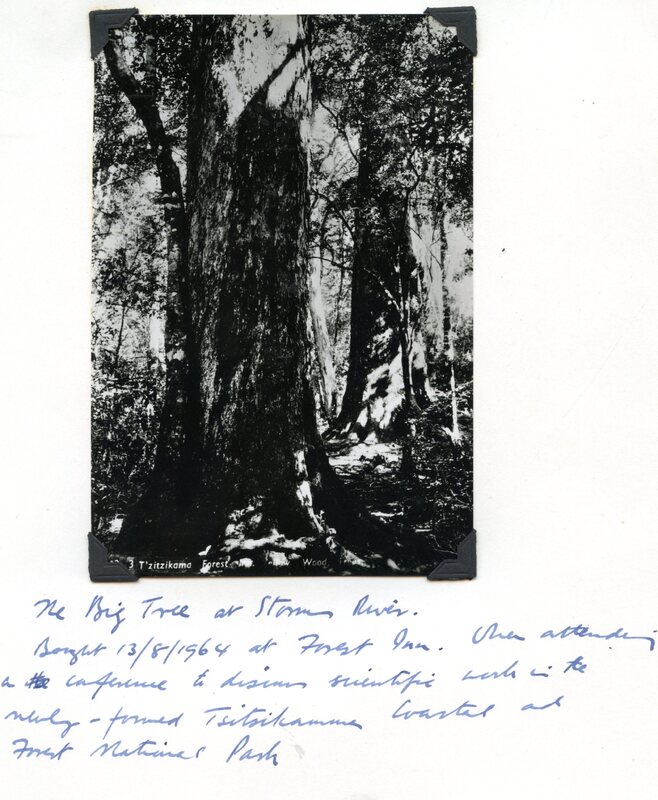 3 T'zitzikama Forest Wood
The Big Tree at Storms River.
Bought 13/8/1964 at Forest Inn. When attending
a the conference to discuss scientific work in the
newly-formed Tsitsikamma Coastal and
Forest National Park